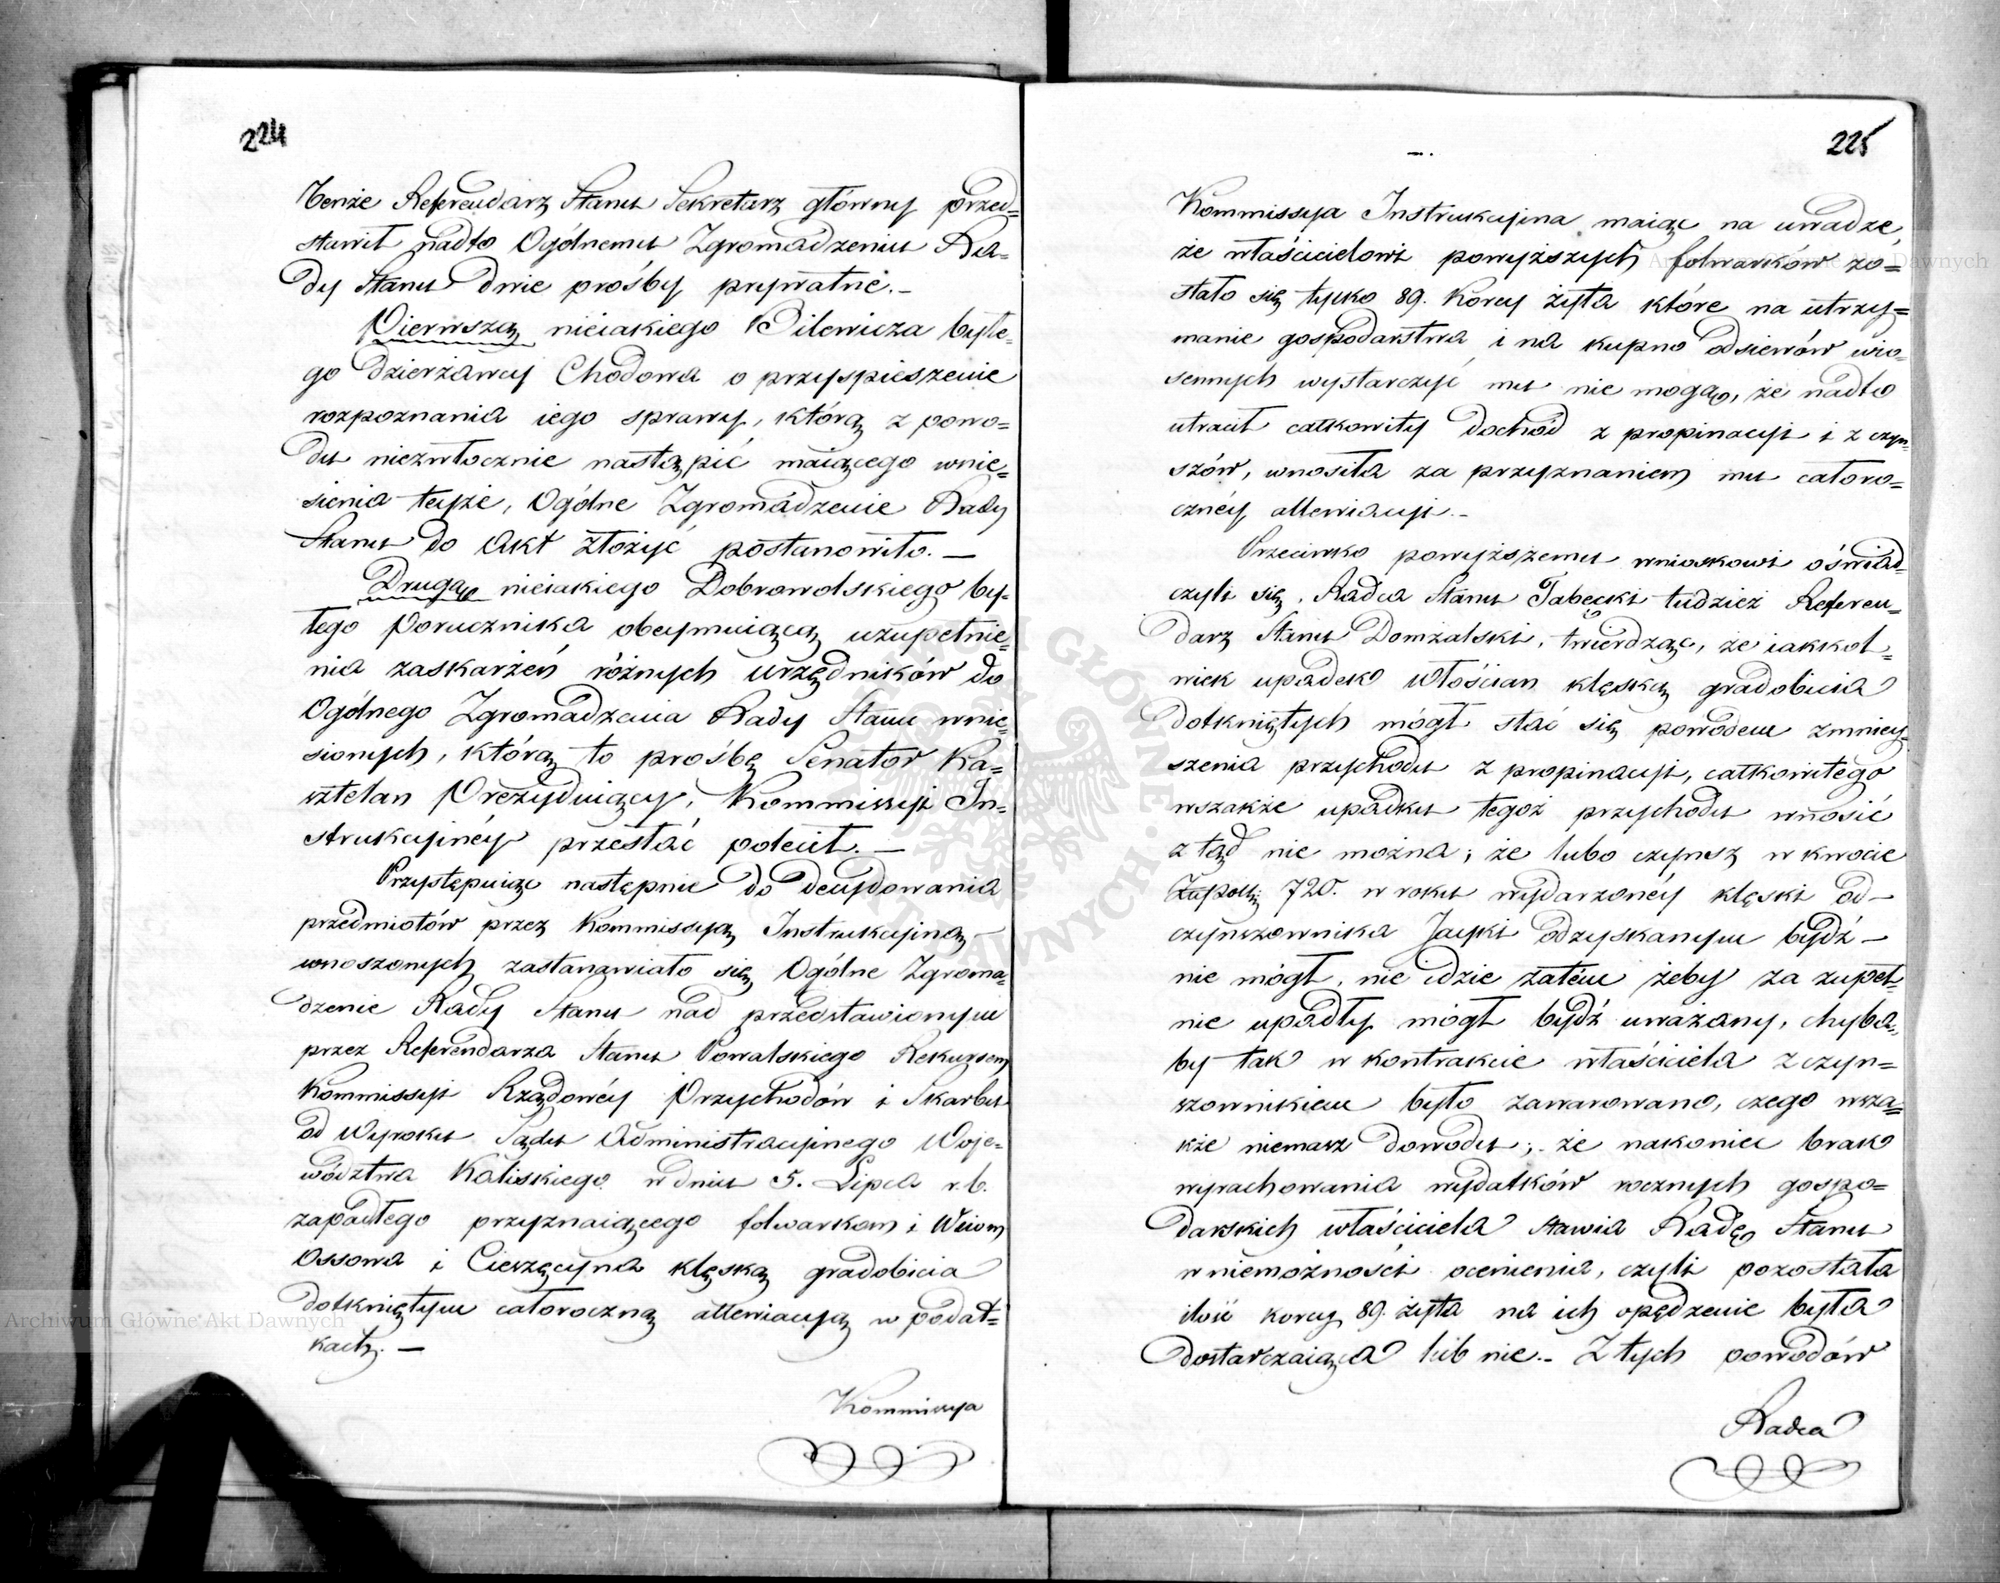 224
Tenże Referendarz Stanu Sekretarz główny przed=
stawił nadto Ogólnemu Zgromadzeniu Ra=
dy Stanu dwie prośby prywatne.–
Pierwszą nieiakiego Bilewicza byłe=
go dzierżawcy Chodowa o przyspieszenie
rozpoznania iego sprawy, którą z powo=
du niezwłocznie nastąpić maiącego wnie=
sienia teyże, Ogólne Zgromadzenie Rady
Stanu do Akt złożyć postanowiło.—
Drugą nieiakiego Dobrowolskiego by=
łego Porucznika obeymuiącą uzupełnie=
nia zaskarżeń różnych urzędników do
Ogólnego Zgromadzenia Rady Stanu wnie=
sionych, którą to prośbę Senator Ka=
sztelan Prezyduiący, Kommissyi In=
strukcyinéy przesłać polecił.—
Przystępuiąc następnie do decydowania
przedmiotów przez Kommissyą Instrukcyiną
wnoszonych zastanawiało się Ogólne Zgroma=
dzenie Rady Stanu nad przedstawionym
przez Referendarza Stanu Powalskiego Rekursem
Kommissyi Rządowéy Przychodów i Skarbu
od Wyroku Sądu Administracyinego Woje=
wództwa Kaliskiego w dniu 5. Lipca r.b.
zapadłego przyznaiącego folwarkom i Wsiom
Ossowa i Cieszęcyna klęską gradobicia
dotkniętym całoroczną allewiacyą w podat=
kach.—
Kommissya
225
Kommissya Instrukcyina maiąc na uwadze,
że właścicielowi powyższych folwarków zo=
stało się tylko 89. Korcy żyta które na utrzy=
manie gospodarstwa i na kupno odsiewów wio=
sennych wystarczyć mu nie mogą, że nadto
utracił całkowity dochód z propinacyi i z czyn=
szów, wnosiła za przyznaniem mu całoro=
cznéy allewiacyi.–
Przeciwko powyższemu wnioskowi oświad=
czyli się, Radca Stanu Tabęcki tudzież Referen=
darz Stanu Domżalski, twierdząc, że iakkol=
wiek upadek Włościan klęską gradobicia
dotkniętych mógł stać się powodem zmniey=
szenia przychodu z propinacyi, całkowitego
wszakże upadku tegoż przychodu wnosić
z tąd nie można; że lubo czynsz w kwocie
720. w roku wydarzonéy klęski od
czynszownika Jacyki odzyskanym bydź
nie mógł, nie idzie zatém żeby za zupeł=
nie upadły mógł bydź uważany, chyba=
by tak w kontrakcie właściciela z czyn=
szownikiem było zawarowano, czego wsza=
kże niemasz dowodu; że nakoniec brak
wyrachowania wydatków rocznych gospo=
darskich właściciela stawia Radę Stanu
w niemożności ocenienia, czyli pozostała
ilość korcy 89. żyta na ich opędzenie była
dostarczaiącą lub nie.– Z tych powodów
Radca
Archiwum Główne Akt Dawnych